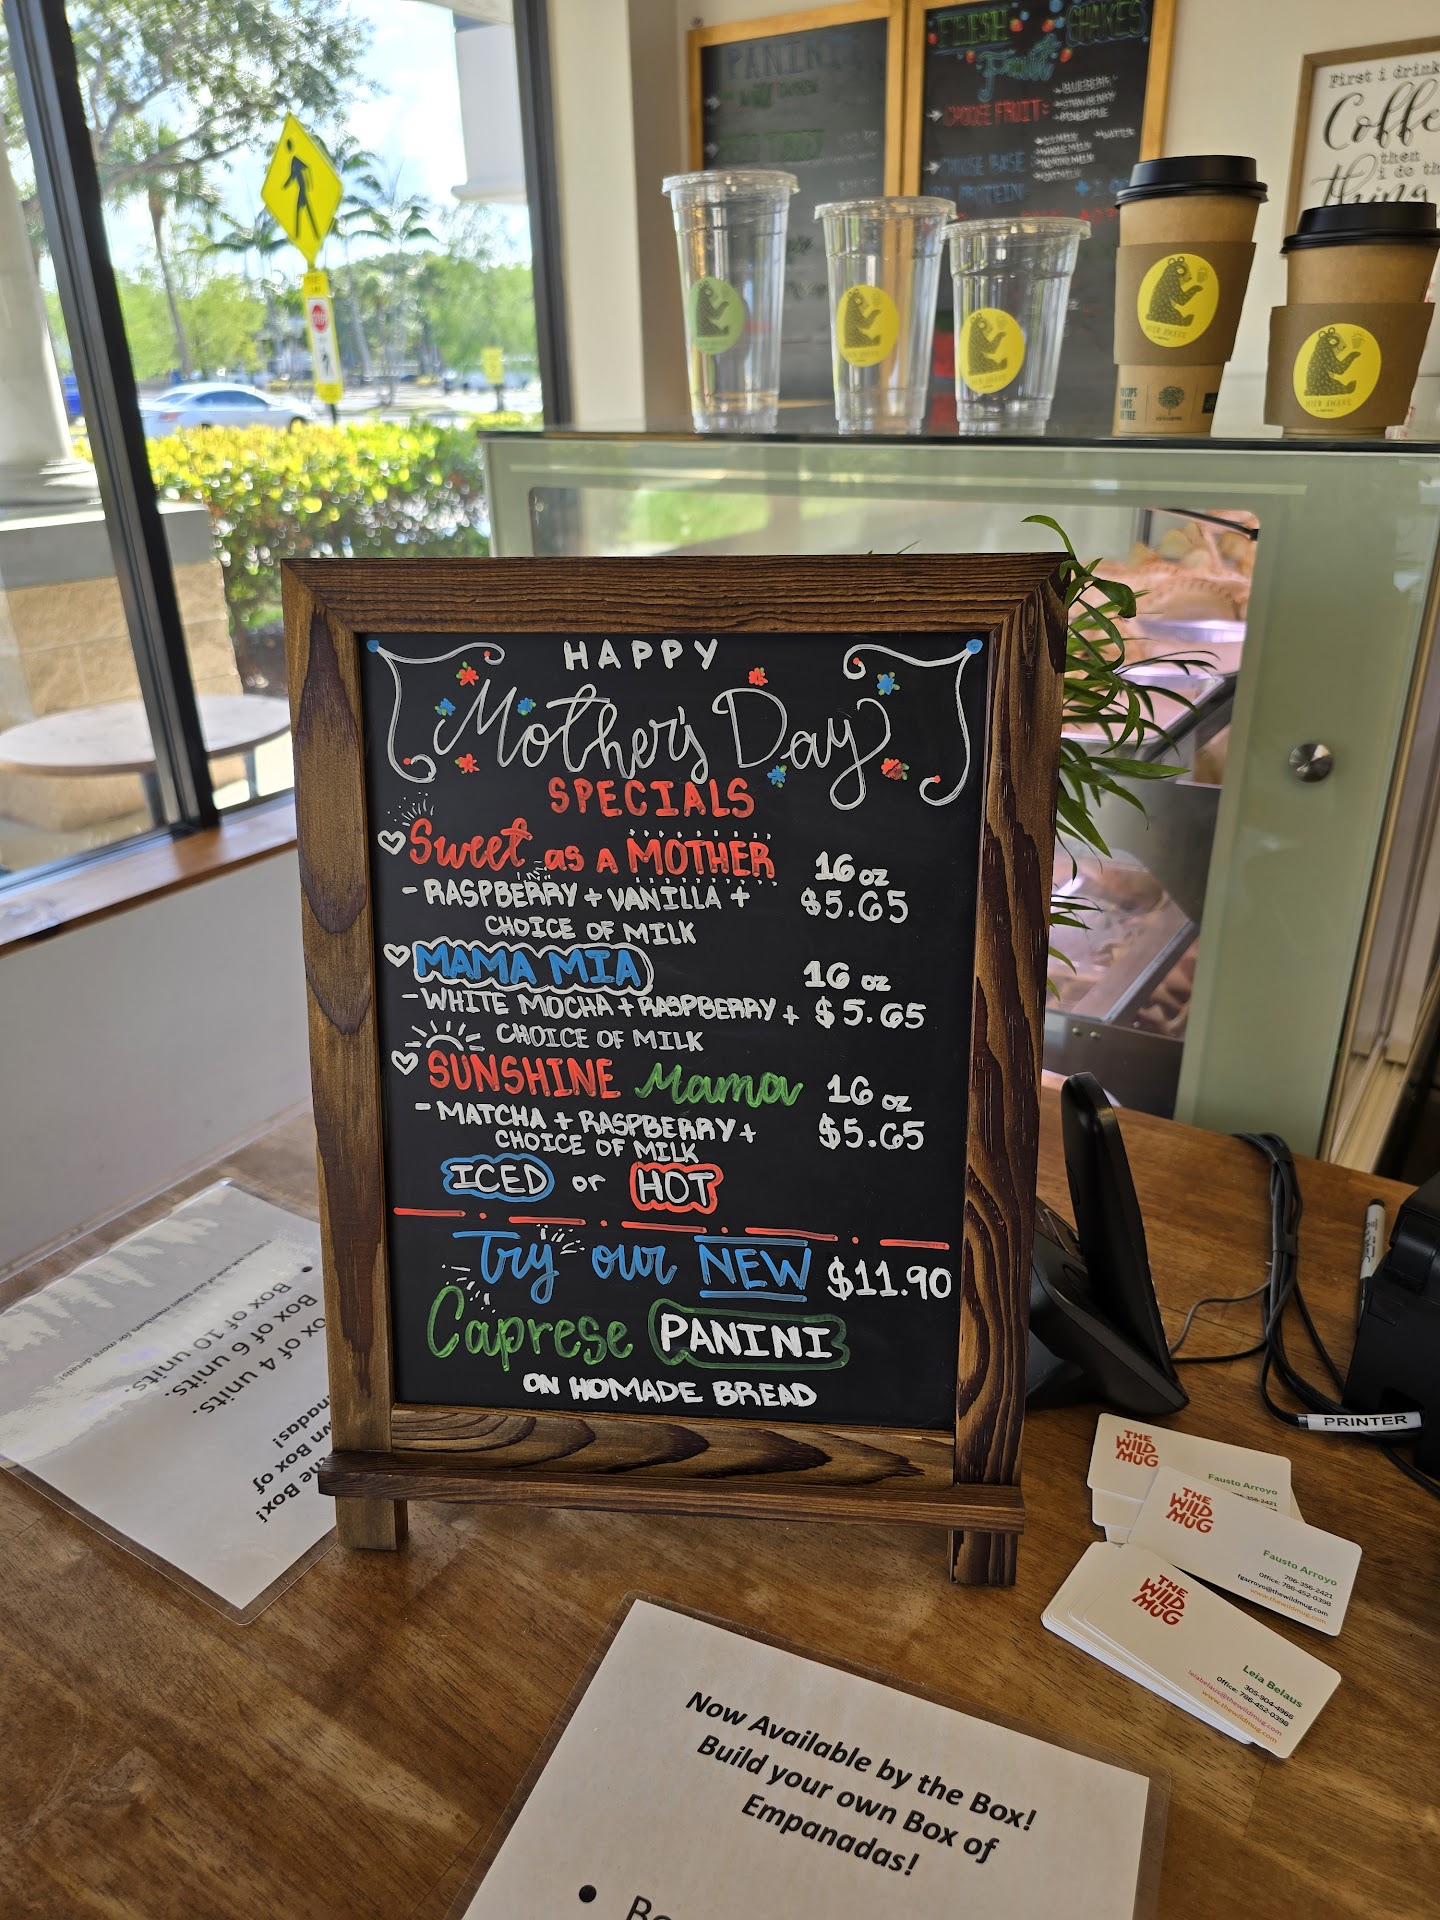 PANINI
FRESH
Fruit
SHAKES
→ CHOOSE FRUIT:
→ BLUEBERRY
→ STRAWBERRY
→ PINEAPPLE
First i drink
Coffe
then
i do th
thing
HAPPY
Mother's Day
SPECIALS
Sweet as a MOTHER
16 oz
- RASPBERRY + VANILLA +
$5.65
CHOICE OF MILK
MAMA MIA
16 oz
- WHITE MOCHA + RASPBERRY +
$5.65
CHOICE OF MILK
SUNSHINE Mama
16 oz
- MATCHA + RASPBERRY +
$5.65
CHOICE OF MILK
ICED or HOT
Try our NEW $11.90
Caprese PANINI
ON HOMADE BREAD
PRINTER
THE
WILD
MUG
Fausto Arroyo
THE
WILD
MUG
Fausto Arroyo
786-356-2421
Office: 786-452-0398
fgarroyo@thewildmug.com
www.thewildmug.com
THE
WILD
MUG
Leia Belaus
305-904-4966
Office: 786-452-0398
leiabelaus@thewildmug.com
www.thewildmug.com
the Box!
wn Box of
nadas!
ox of 4 units.
Box of 6 units.
• Box of 10 units.
of our team members for more details!
Now Available by the Box!
Build your own Box of
Empanadas!
•